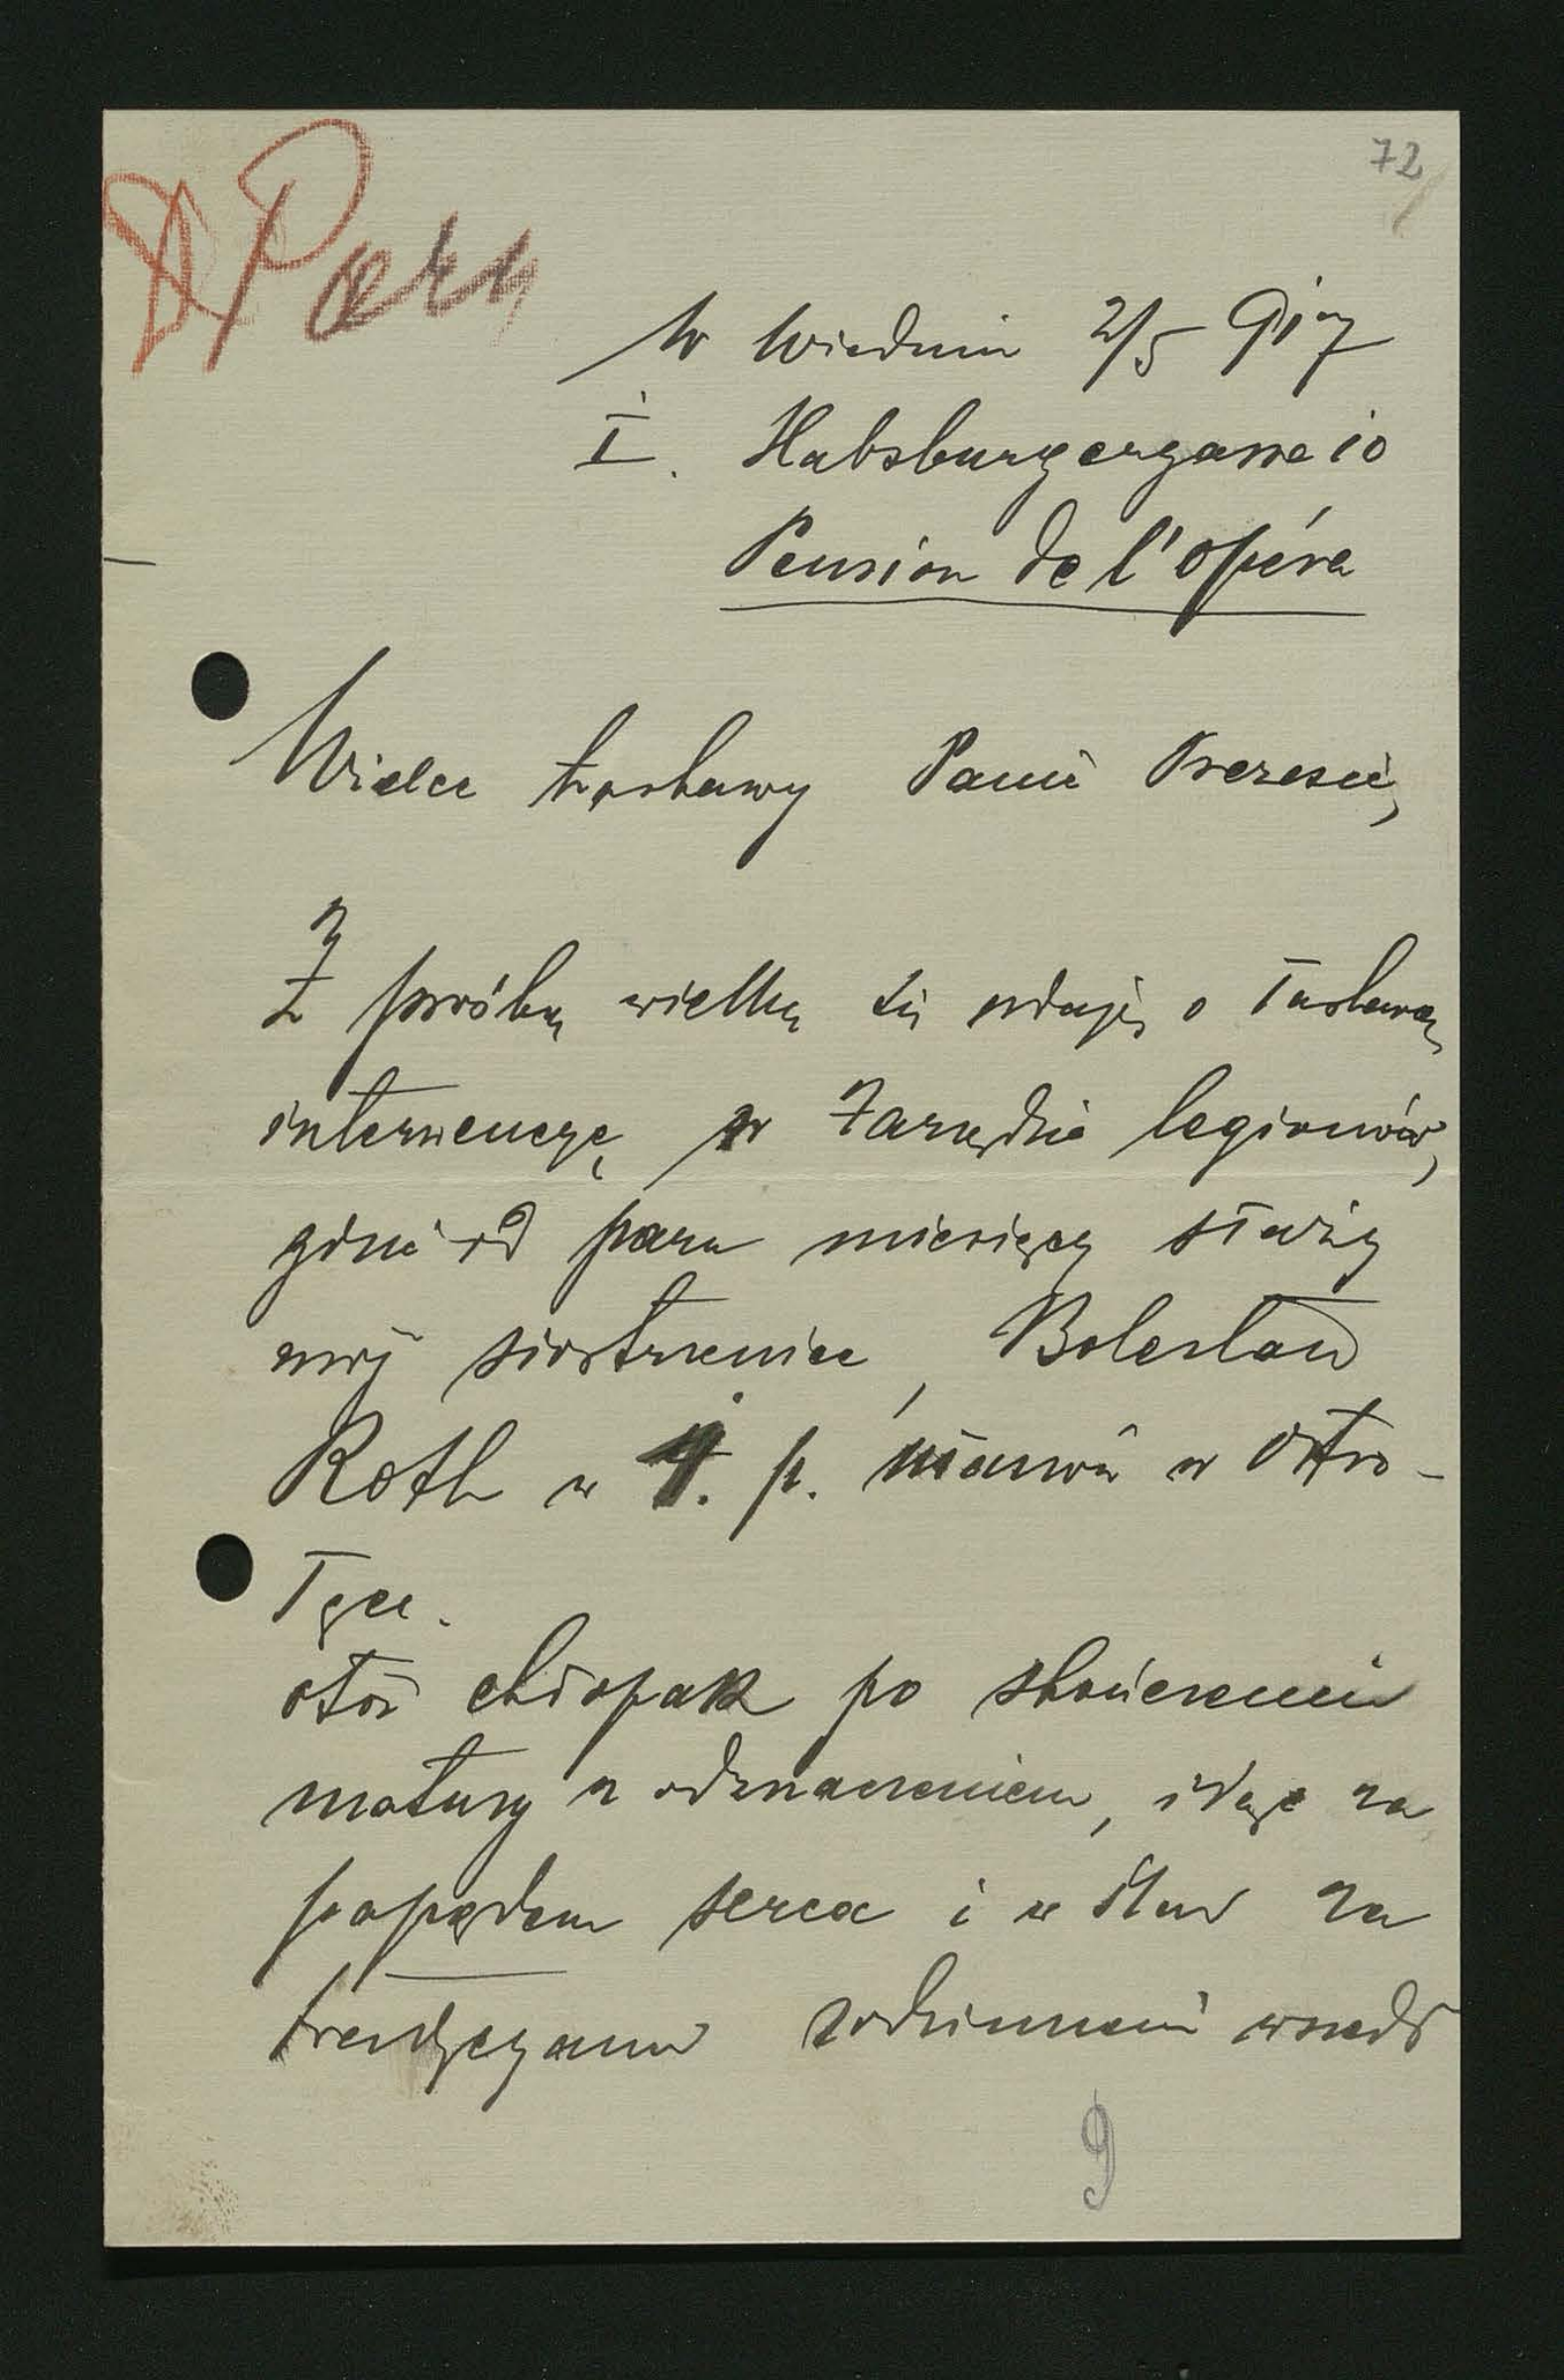 72
W Wiedniu 2/5 917
I. Habsburgergasse 10
Pension de l'opéra
Wielce łaskawy Panie Prezesie,
Z prośbą wielką się udaję o łaskawą
interwencyę w Zarządzie legionów,
gdzie od paru miesięcy służy
mój siostrzeniec, Bolesław
Roth w 4. p. ułanów w Ostro-
łęce.
otóż chłopak po skończeniu
matury z odznaczeniem, idąc za
popędem serca i w ślad za
tradycyami rodzinnemi wszedł
9